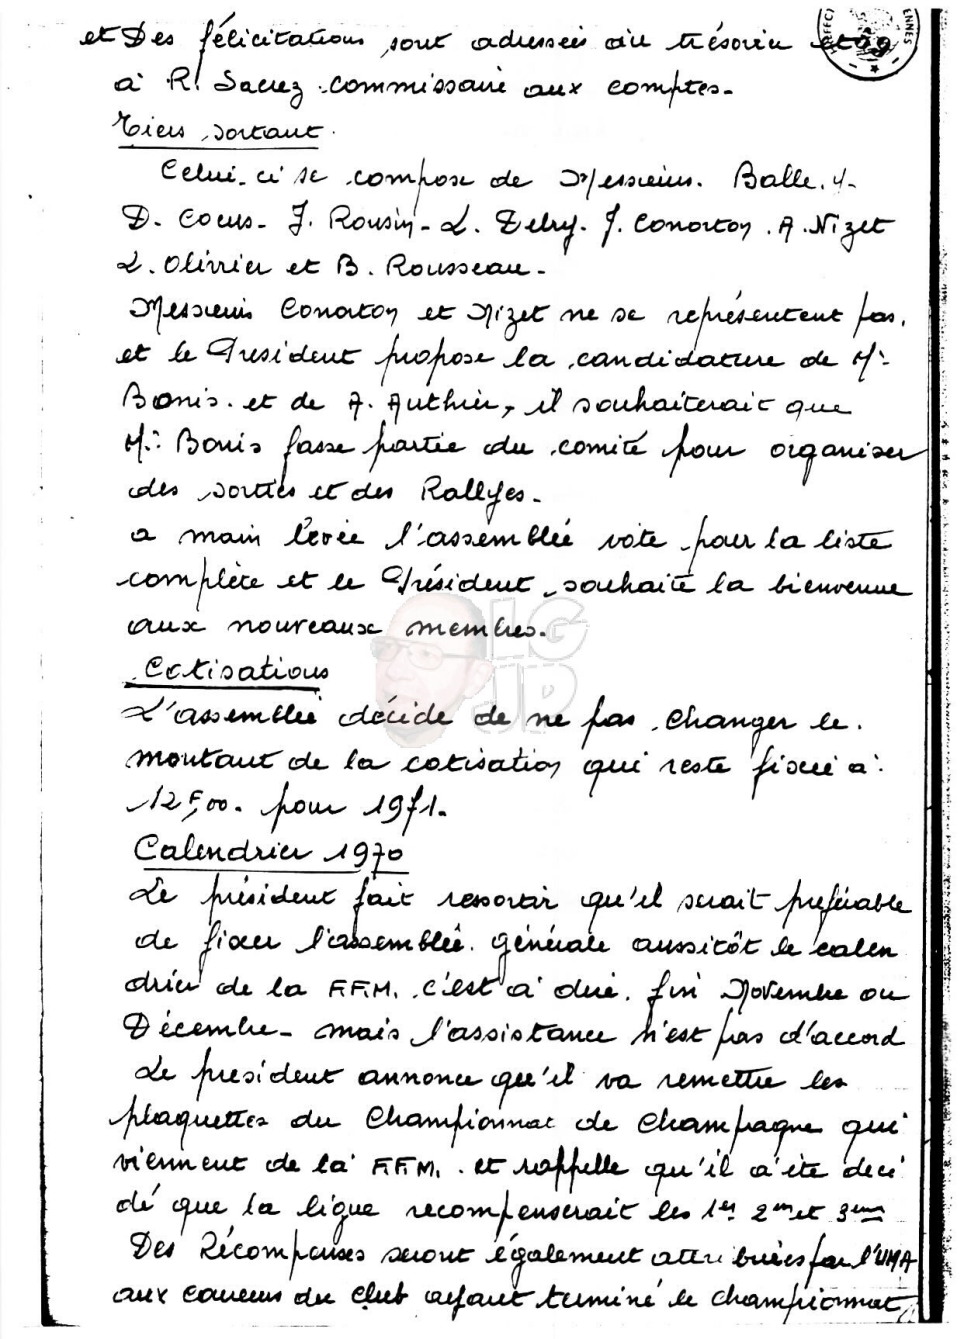 et Des félicitations sont adressées au trésorier et
à R. Sacrez commissaire aux comptes.
Tiers sortant.
Celui-ci se compose de Messieurs. Balle. Y-
D. Cocus- J. Rousin- L. Delry. J. Conorton. A. Nizet
L. Olivier et B. Rousseau-
Messieurs Conorton et Nizet ne se représentent pas.
et le Président propose la candidature de Mr
Bonis. et de A. Authier, il souhaiterait que
Mr Bonis fasse partie du comité pour organiser
des sorties et des Rallyes-
a main levée l'assemblée vote pour la liste
complète et le Président souhaite la bienvenue
aux nouveaux membres.
LG
JD
Cotisations
L'assemblée décide de ne pas changer le
montant de la cotisation qui reste fixée à
12F,00. pour 1971.
Calendrier 1970
Le président fait ressortir qu'il serait préférable
de fixer l'assemblée générale aussitôt le calen
drier de la F.F.M. c'est à dire. fin Novembre ou
Décembre- mais l'assistance n'est pas d'accord
Le président annonce qu'il va remettre les
plaquettes du Championnat de Champagne qui
viennent de la F.F.M. et rappelle qu'il a été déci
dé que la ligue recompenserait les 1er 2me et 3eme
Des Récompenses seront également attribuées par l'UMA
aux coureurs du club ayant terminé le championnat